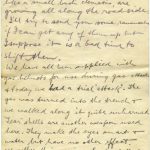 like a small bush clematis, are
growing all along the road side.
I'll try to send you some
if I can get any of them up but I
suppose it is a bad time to
shift them.
We have all been supplied with
gas helmets for use during gas attacks
& today we had a trial attack. The
gas was turned into the trench &
we walked along it quite unharmed
Tear shells are another weapon used
here. They make the eyes smart &
water but have no other effect